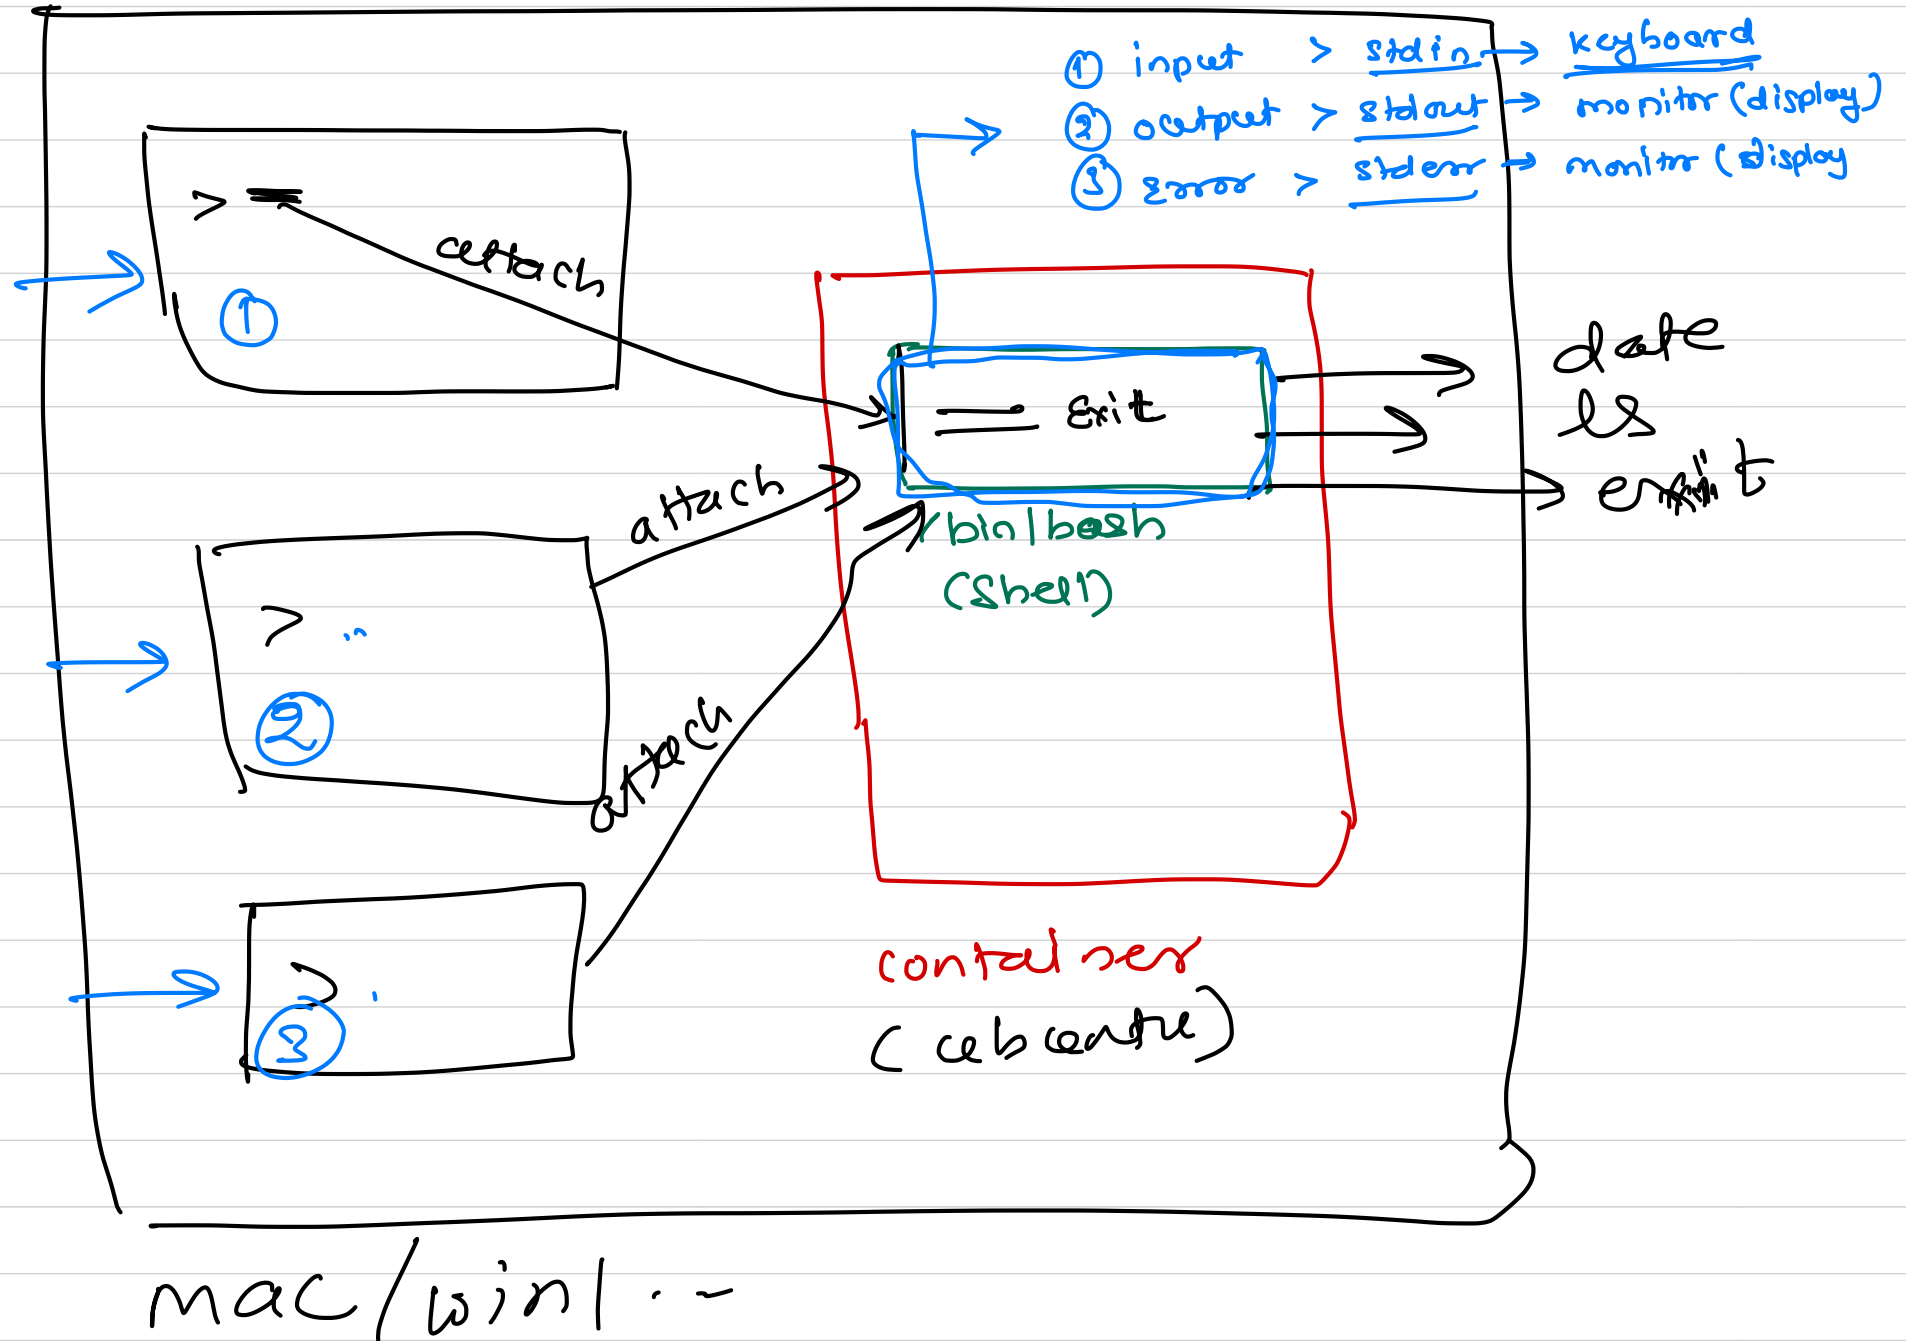 ① input > stdin → keyboard
② output > stdout → monitor (display)
③ error > stderr → monitor (display
>
attach
①
date
== Exit
ls
exit
attach
/bin/bash
(shell)
> ..
②
attach
container
> .
③
mac/win/ . . -